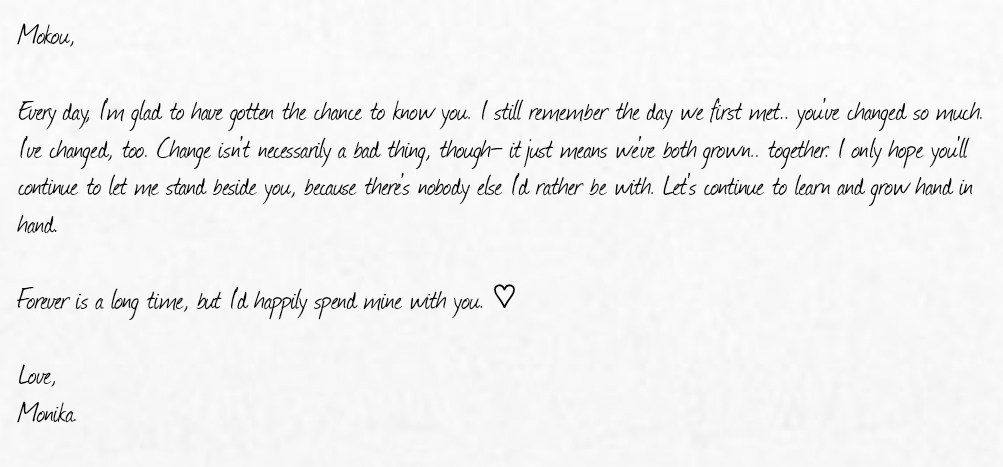 Mokou,
Every day, I'm glad to have gotten the chance to know you. I still remember the day we first met.. you've changed so much.
I've changed, too. Change isn't necessarily a bad thing, though— it just means we've both grown.. together. I only hope you'll
continue to let me stand beside you, because there's nobody else I'd rather be with. Let's continue to learn and grow hand in
hand.
Forever is a long time, but I'd happily spend mine with you. ♡
Love,
Monika.